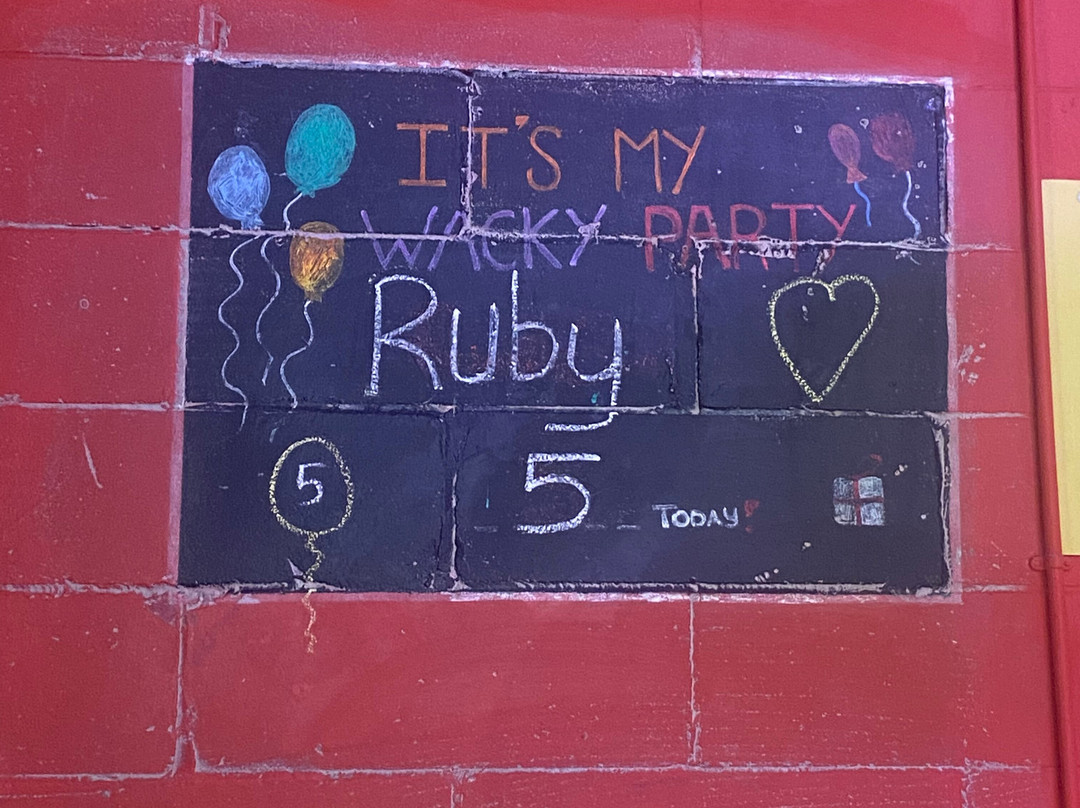 IT'S MY
WACKY PARTY
Ruby
5
5 TODAY!